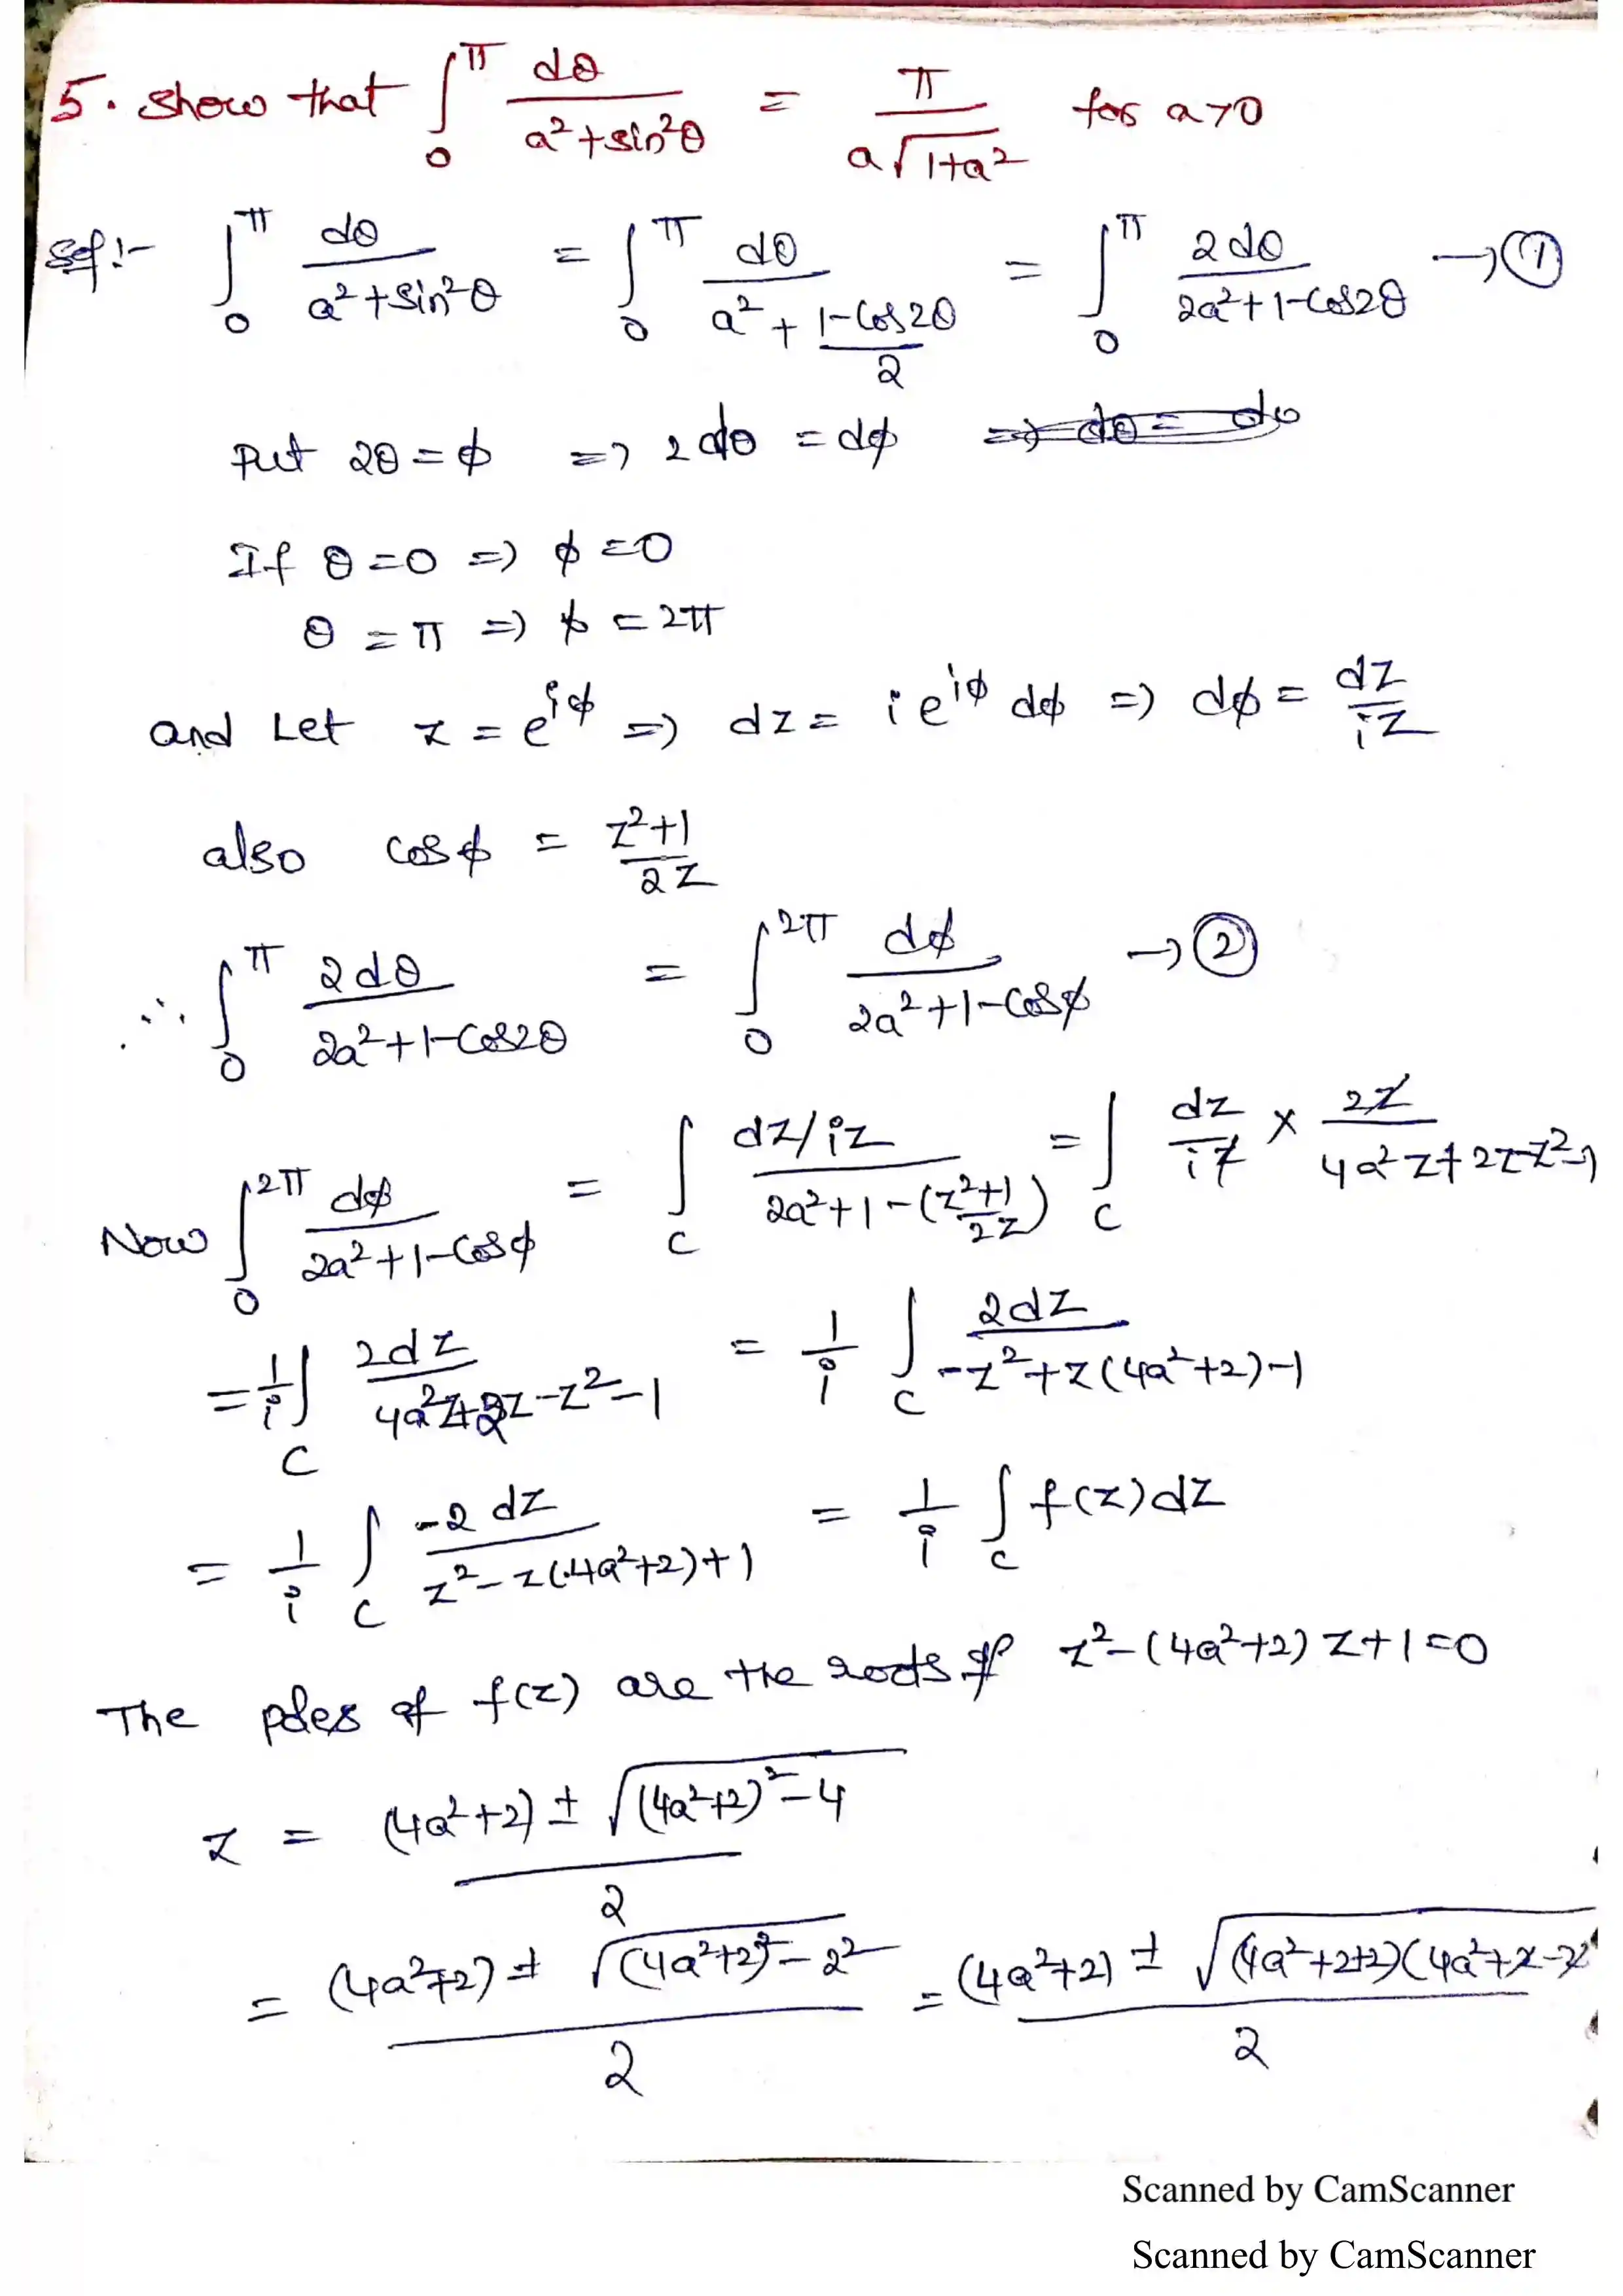 5. Show that ∫₀^π dθ/(a²+sin²θ) = π/(a√(1+a²)) for a>0
Sol:- ∫₀^π dθ/(a²+sin²θ) = ∫₀^π dθ/(a² + (1-cos2θ)/2) = ∫₀^π 2dθ/(2a²+1-cos2θ) → ①
Put 2θ = φ ⇒ 2dθ = dφ
If θ = 0 ⇒ φ = 0
θ = π ⇒ φ = 2π
and Let z = e^{iφ} ⇒ dz = i e^{iφ} dφ ⇒ dφ = dz/iz
also cosφ = (z²+1)/2z
∴ ∫₀^π 2dθ/(2a²+1-cos2θ) = ∫₀^{2π} dφ/(2a²+1-cosφ) → ②
Now ∫₀^{2π} dφ/(2a²+1-cosφ) = ∫_C (dz/iz)/(2a²+1-((z²+1)/2z)) = ∫_C dz/iz × 2z/(4a²z+2z-z²-1)
= 1/i ∫_C 2dz/(4a²z+2z-z²-1) = 1/i ∫_C 2dz/(-z²+z(4a²+2)-1)
= 1/i ∫_C -2dz/(z²-z(4a²+2)+1) = 1/i ∫_C f(z)dz
The poles of f(z) are the roots of z²-(4a²+2)z+1=0
z = ((4a²+2) ± √((4a²+2)²-4))/2
= ((4a²+2) ± √((4a²+2)²-2²))/2 = ((4a²+2) ± √((4a²+2+2)(4a²+2-2)))/2
Scanned by CamScanner
Scanned by CamScanner